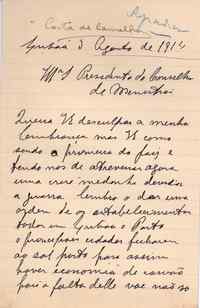 Agradeça
"Costa de Carvalho"
Lisboa 5 Agosto de 1914
Presidente do Conselho
de Ministros
Queira VE desculpar a minha
lembrança mas VE como
sendo o primeiro do paiz e
tendo nos de atravessar agora
uma crise medonha devido
a guerra, lembro o dar uma
ordem de os estabelecimentos
todos em Lisboa e Porto
e principaes cidades fecharem
ao sol posto para assim
haver economia de carvão
pois a falta delle vae